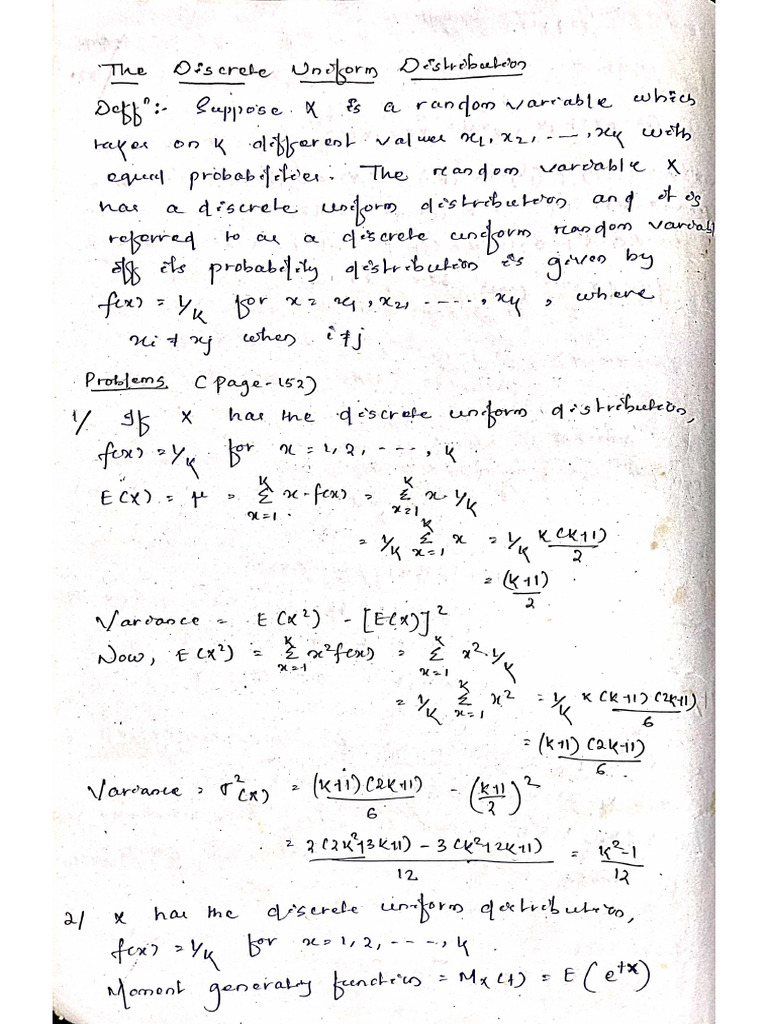 The Discrete Uniform Distribution
Deffⁿ:- Suppose X is a random variable which
takes on k different values x₁, x₂, ---, xₖ with
equal probabilities. The random variable X
has a discrete uniform distribution and it is
referred to as a discrete uniform random variabl
iff its probability distribution is given by
f(x) = 1/k for x = x₁, x₂, -----, xₖ, where
xi ≠ xj when i ≠ j
Problems (page-152)
1/ If X has the discrete uniform distribution,
f(x) = 1/k for x = 1, 2, ---, k.
E(X) = μ = Σ_{x=1}^{k} x·f(x) = Σ_{x=1}^{k} x·1/k
= 1/k Σ_{x=1}^{k} x = 1/k k(k+1)/2
= (k+1)/2
Variance = E(X²) - [E(X)]²
Now, E(X²) = Σ_{x=1}^{k} x² f(x) = Σ_{x=1}^{k} x²·1/k
= 1/k Σ_{x=1}^{k} x² = 1/k k(k+1)(2k+1)/6
= (k+1)(2k+1)/6
Variance = σ²(X) = (k+1)(2k+1)/6 - ((k+1)/2)²
= 2(2k²+3k+1) - 3(k²+2k+1)/12 = k²-1/12
2/ X has the discrete uniform distribution,
f(x) = 1/k for x = 1, 2, ---, k.
Moment generating function = Mₓ(t) = E(e^{tX})